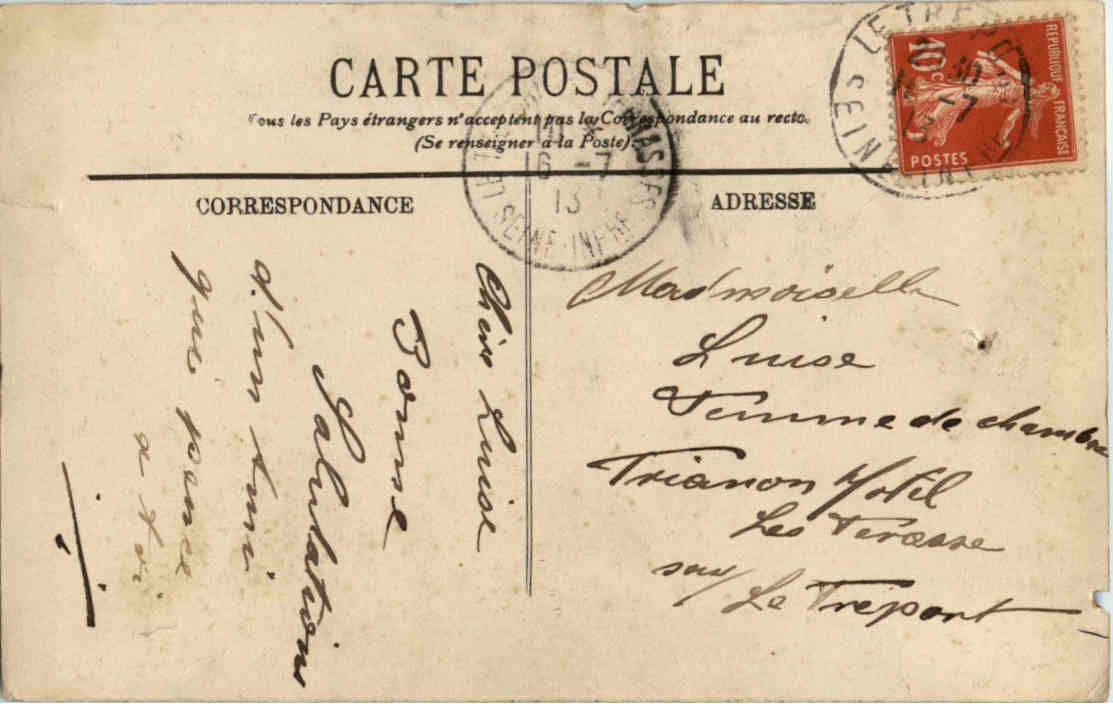 CARTE POSTALE
Tous les Pays étrangers n'acceptent pas la Correspondance au recto.
(Se renseigner à la Poste).
CORRESPONDANCE
ADRESSE
REPUBLIQUE FRANÇAISE
10c
POSTES
LE TREPORT
30
-7
16 -7
13
SEINE-INFRE
Chère Luise
Bonne
Salutations
d'un ami
que pence
a toi
Madmoiselle
Luise
Femme de chambre
Trianon Hotel
Les Terasse
sur/ Le Treport